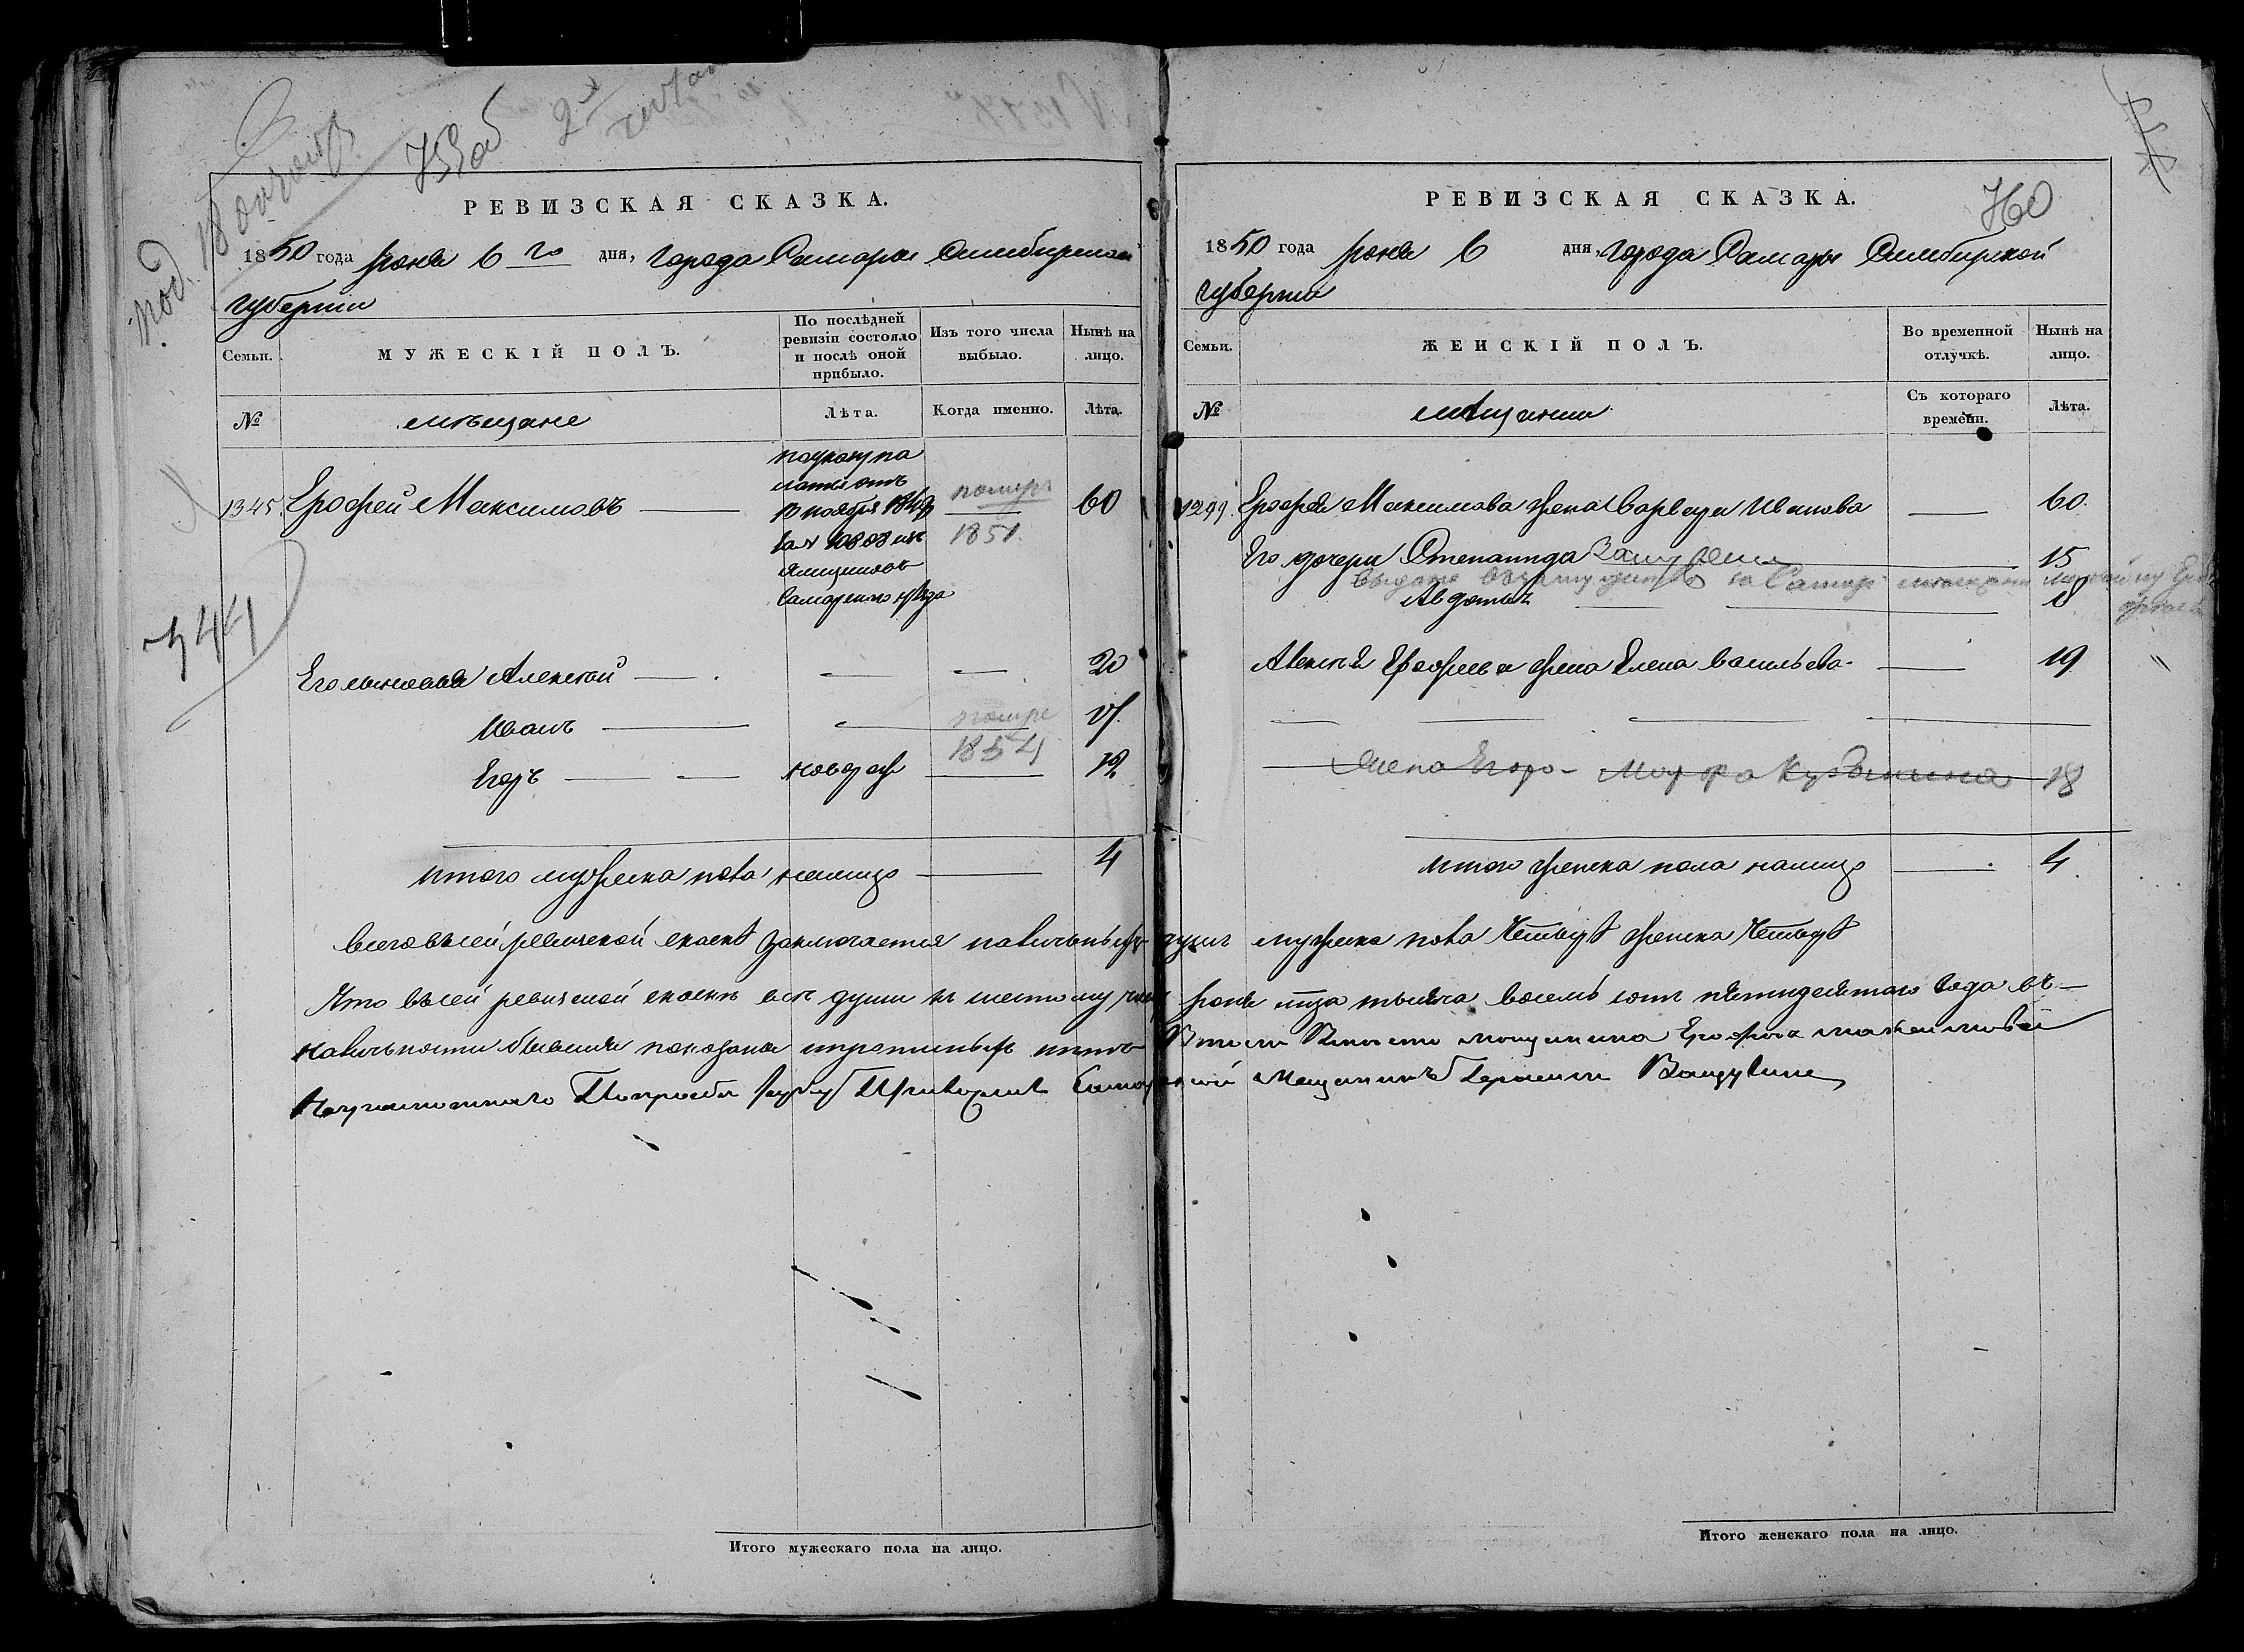 759 об
2я
под. 18 октября
РЕВИЗСКАЯ СКАЗКА.
1850 года июня 6 го дня, города Самары Симбирской
губернии
Семьи.
МУЖЕСКІЙ ПОЛЪ.
По послѣдней ревизіи состояло и послѣ оной прибыло.
Изъ того числа выбыло.
Нынѣ на лицо.
№
мѣщане
Лѣта.
Когда именно.
Лѣта.
1345. Ерофей Максимовъ
по указу па
латы отъ
13 ноября 1849
за № 10803 изъ
ямщиковъ
Самарскаго уѣзда
померъ
1851.
60
344
Его сыновья Алексей
20
Иванъ
помре
1854
17.
Егоръ
новорож
12
итого мужеска пола налицо 4
РЕВИЗСКАЯ СКАЗКА.
760
1850 года июня 6 дня, города Самары Симбирской
губернии
Семьи.
ЖЕНСКІЙ ПОЛЪ.
Во временной отлучкѣ.
Нынѣ на лицо.
№
мѣщанки
Съ котораго времени.
Лѣта.
1299. Ерофея Максимова жена Варвара Иванова 60.
Его дочери Степанида 15
выдана въ замужество за Самар
Авдотья 8
Алексѣя Ерофеева жена Елена Васильева 19
жена Егора Марфа Кузьмина 18
итого женска пола налицо 4.
всего в сей ревизской скаскѣ заключается наличныхъ душъ мужеска пола четыре женска четыре
Что в сей ревизской скаскѣ все души к шестому число июня м-ца тысяча восемь сотъ пятидесятаго года въ
наличности бывшия показаны
мещанина Ерофея Максимова
неграмотнаго по просьбѣ руку приложилъ Самарской мещанинъ Герасимъ
Итого мужескаго пола на лицо.
Итого женскаго пола на лицо.